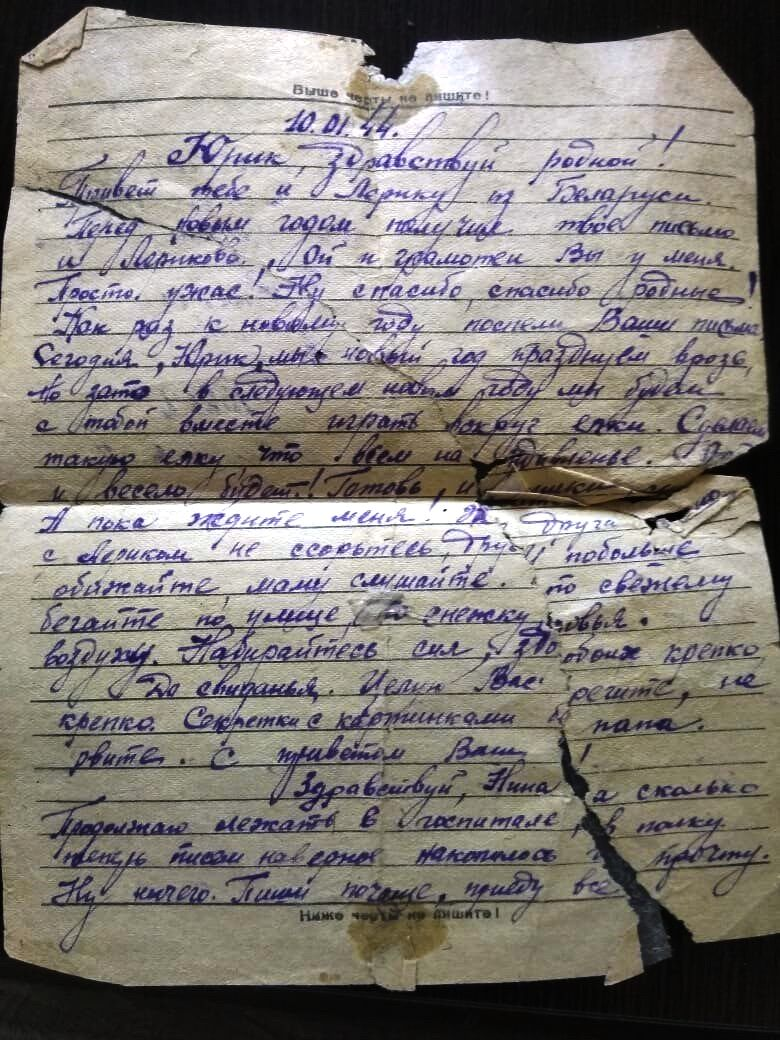 Выше черты не пишите!
10.01.44.
Юрик, здравствуй родной!
Привет тебе и Лерику из Беларуси.
Перед новым годом получил твое письмо
и Лериково. Ой и грамотеи Вы у меня.
Просто ужас! Ну спасибо, спасибо родные!
Как раз к новому году поспели Ваши письма.
Сегодня, Юрик, мы новый год празднуем врозь,
но зато в следующем новом году мы будем
с тобой вместе играть вокруг елки. Сделаем
такую елку, что всем на удивленье.
и весело будет! Готовь,
А пока ждите меня! друг друга
с Лериком не ссорьтесь, побольше
обижайте, маму слушайте. по свежему
бегайте по улице, по снежку,
воздуху. Набирайтесь сил, здоровья.
До свиданья. Целую Вас обоих крепко,
крепко. Секретки с картинками берегите, не
рвите. С приветом Ваш папа.
Здравствуй, Нина!
Продолжаю лежать в госпитале, а сколько
теперь писем наверное накопилось в полку.
Ну ничего. Пиши почаще, приеду все прочту.
Ниже черты не пишите!